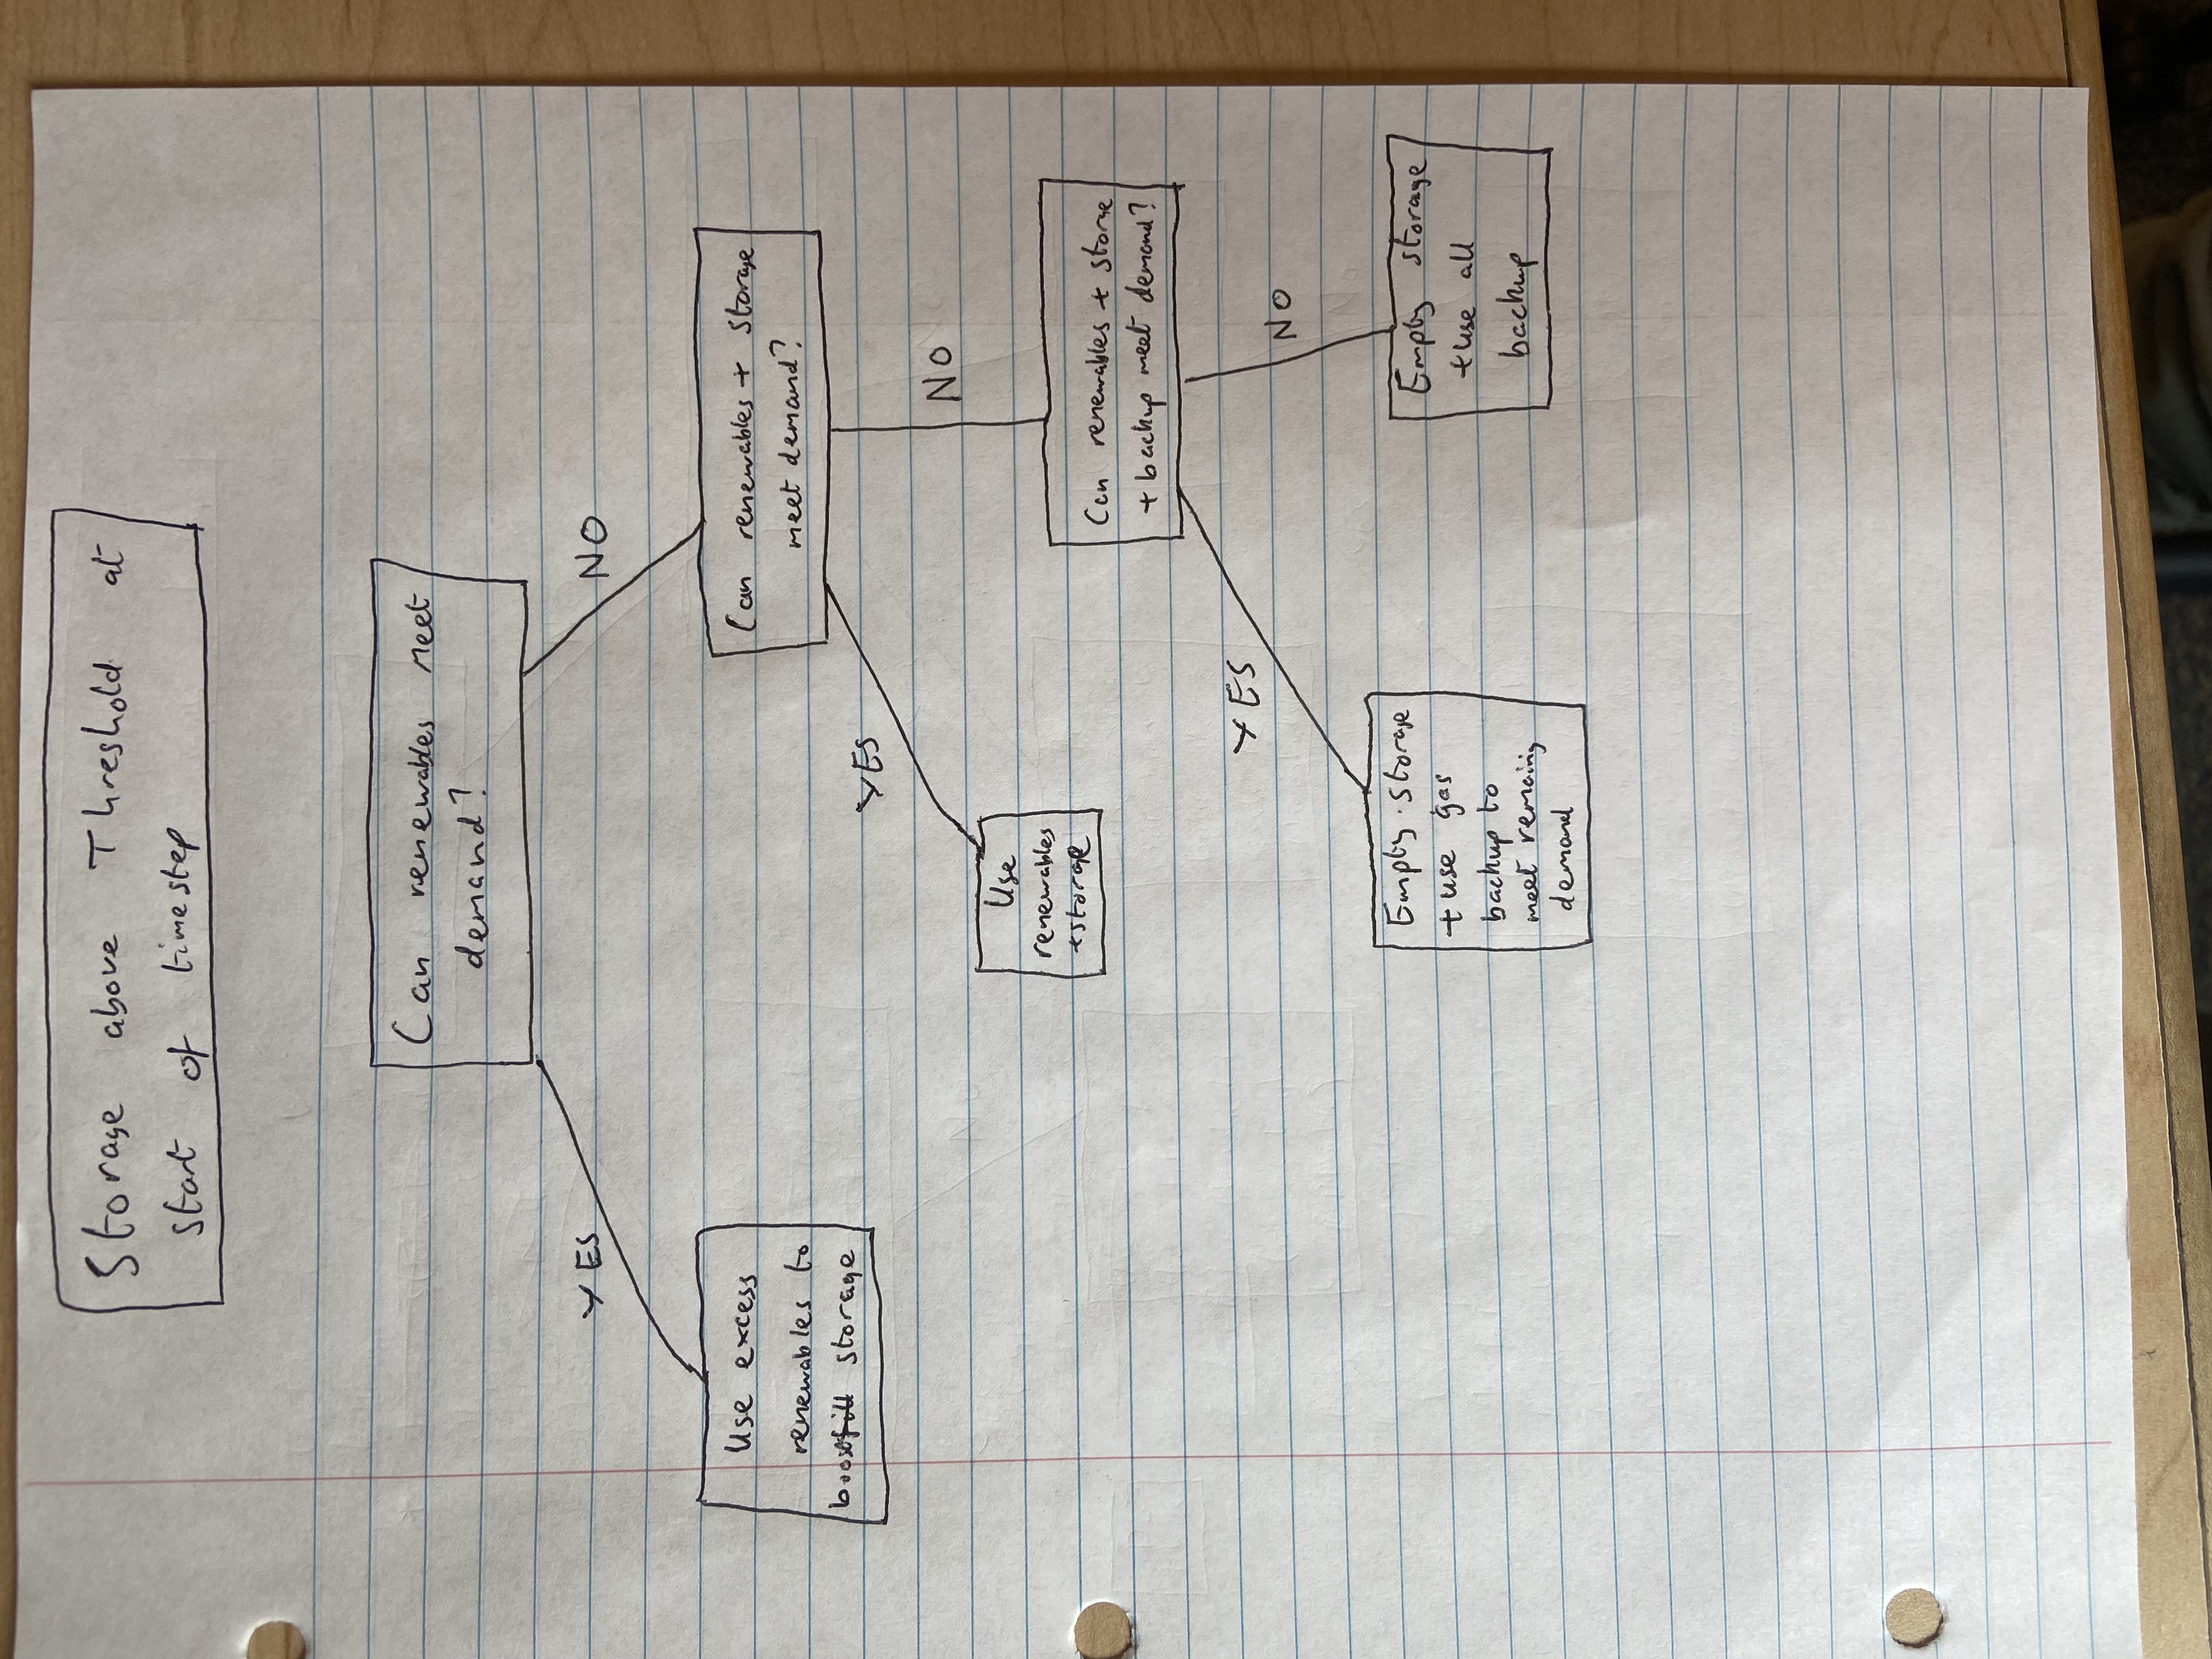 Storage above Threshold at
start of timestep
Can renewables meet
demand?
YES
NO
Use excess
renewables to
boost fill storage
Can renewables + storage
meet demand?
YES
NO
Use
renewables
+storage
Can renewables + storage
+ backup meet demand?
YES
NO
Empty storage
+ use gas
backup to
meet remaining
demand
Empty storage
+use all
backup